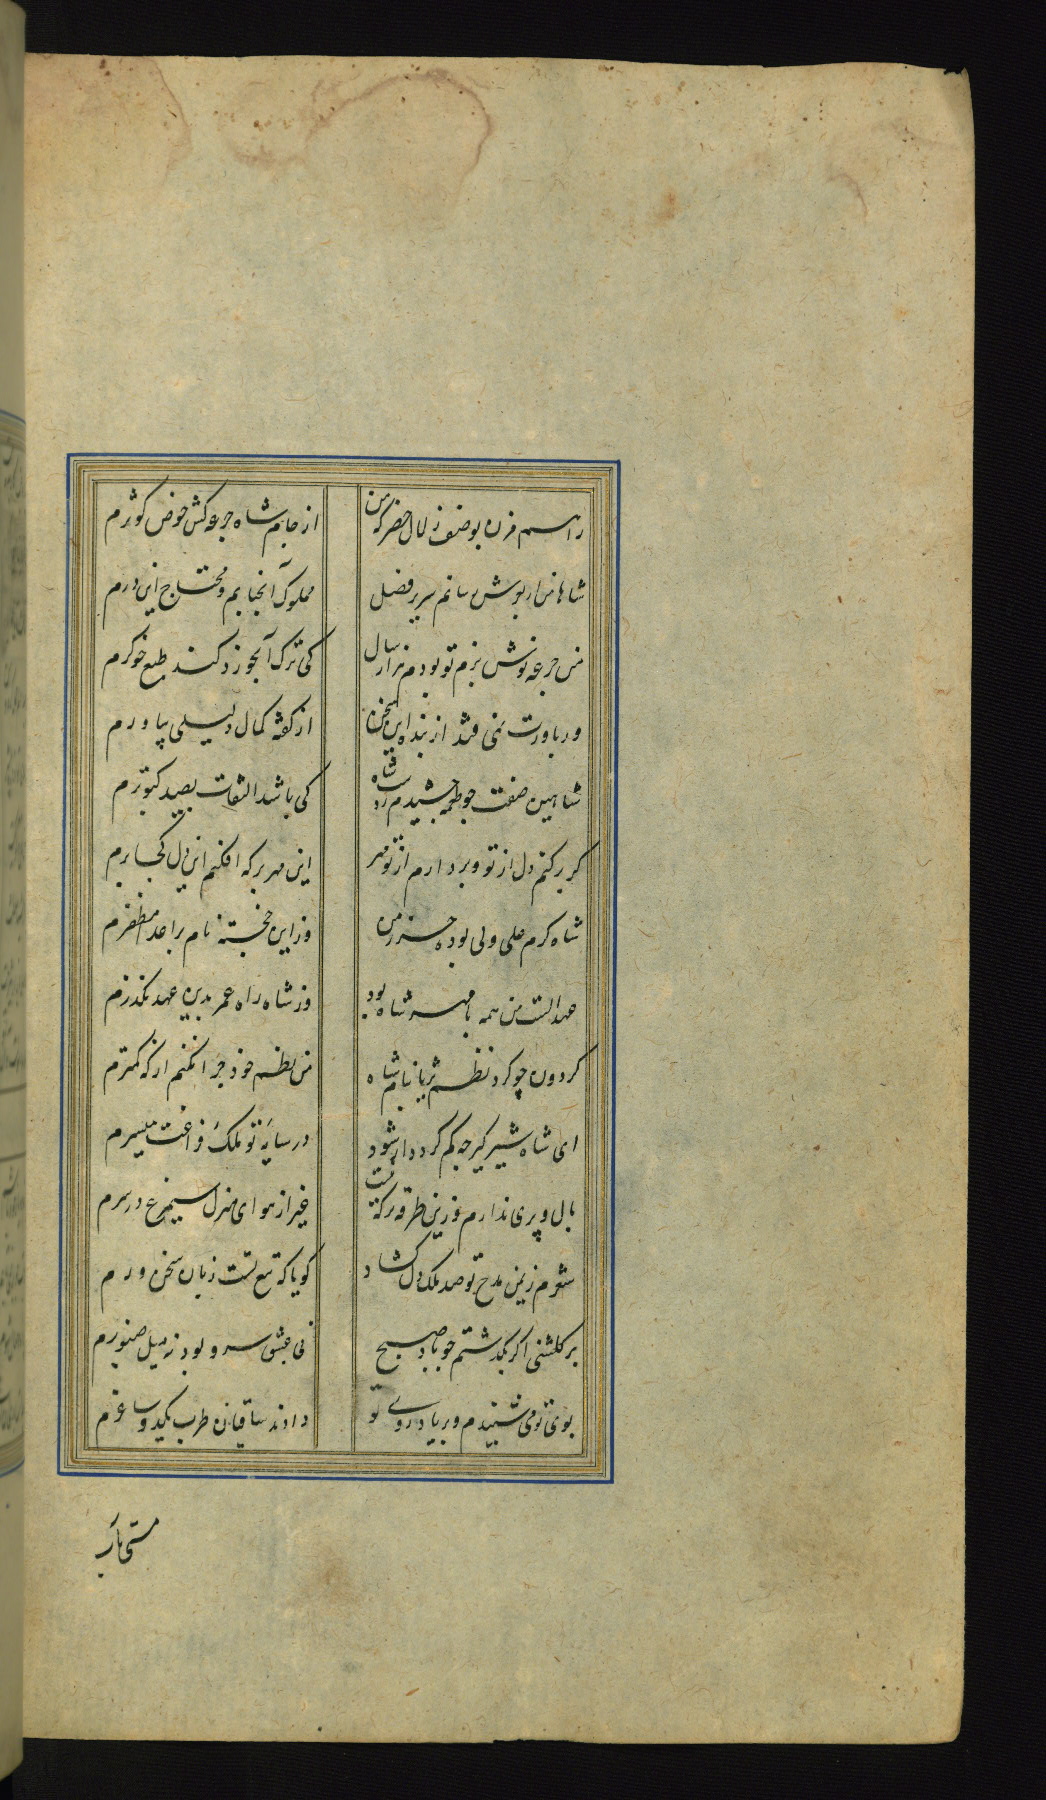 راهم مزن بوصف زلال خضر که من
از جام شاه جرعه کش حوض کوثرم
شاها من ار بعرش رسانم سریر فضل
مملوک آنجنابم و محتاج این درم
من جرعه نوش بزم تو بودم هزار سال
کی ترک آبخورد کند طبع خوکرم
ور باورت نمی فتد از بنده این سخن
از کفته کمال دلیلی بیاورم
شاهین صفت چو طعمه چشیدم ز دست شاه
کی باشد التفات بصید کبوترم
کر برکنم دل از تو و بردارم از تو مهر
این مهر بر که افکنم این دل کجا برم
شاه کرم علی ولی بوده حرز من
وز این خجسته نام بر اعدا مظفرم
عهد الست من همه با مهر شاه بود
وز شاه راه عمر بدین عهد بکذرم
کردون چو کرد نظم ثریا بنام شاه
من نظم خود چرا نکنم از که کمترم
ای شاه شیر کیر چه کم کردد ار شود
در سایه تو ملک فراغت میسرم
بال و پری ندارم وزین طرفه تر که نیست
غیر از هوای منزل سیمرغ در سرم
شعرم زیمن مدح تو صد ملک دل کشاد
کویا که تیغ تست زبان سخن ورم
بر کلشنی اکر بکذشتم چو باد صبح
نی عشق سرو بود نه میل صنوبرم
بوی تو می شنیدم و بر یاد روی تو
دادند ساقیان طرب یکدو ساغرم
مستی بآب